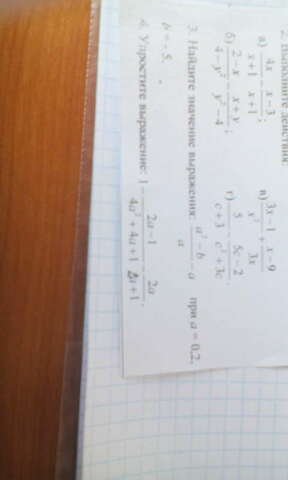 2. Выполните действия:
а) \frac{4x}{x+1} - \frac{x-3}{x+1}; в) \frac{3x-1}{x^2} + \frac{x-9}{3x}
б) \frac{2-x}{4-y^2} - \frac{x+y}{y^2-4}; г) \frac{5}{c+3} - \frac{5c-2}{c^2+3c}.
3. Найдите значение выражения: \frac{a^2-b}{a} - a при a = 0,2,
b = -5.
4. Упростите выражение: 1 - \frac{2a-1}{4a^2+4a+1} - \frac{2a}{2a+1}.